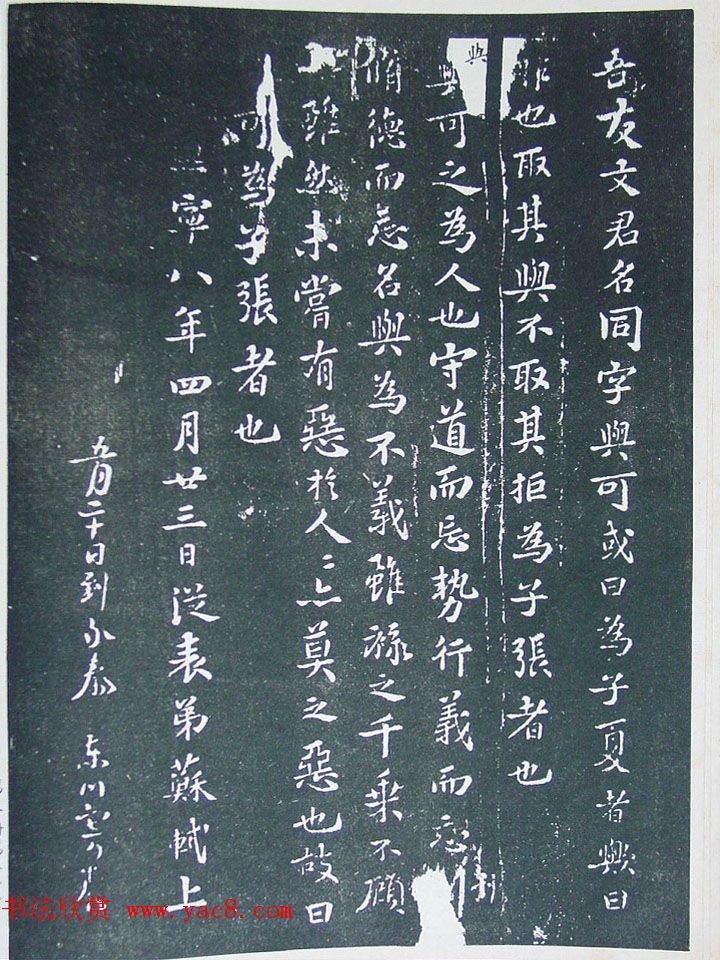 吾友文君名同字與可或曰為子夏者歟曰
非也取其與不取其拒為子張者也
與
可之為人也守道而忘勢行義而忘
脩德而忘名與為不義雖祿之千乘不顧
雖然未嘗有惡於人〻亦莫之惡也故曰
可為子張者也
寧八年四月廿三日從表弟蘇軾上
五月二十日到永泰 東川
书法欣赏 www.yac8.com